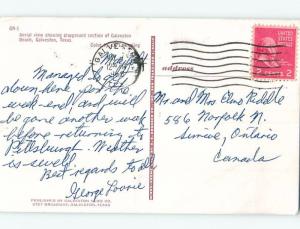 GN-1
Aerial view showing playground section of Galveston
Beach, Galveston, Texas.
GALVESTON
Managed to get
down here for the
week-end and will
be gone another week
before returning to
Pittsburgh. Weather
is swell.
Best regards to all
George
address
Mr. and Mrs
586 Norfolk N.
Simcoe, Ontario
Canada
2
PUBLISHED BY GALVESTON
BROADWAY, GALVESTON, TEXAS